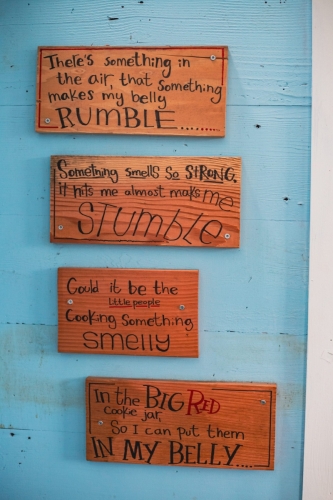 There's something in
the air, that something
makes my belly
RUMBLE......
Something smells so STRONG,
it hits me almost maks me
STUMBLE
Could it be the
little people
Cooking Something
smelly
In the BIG RED
cookie jar,
So I can put them
IN MY BELLY....